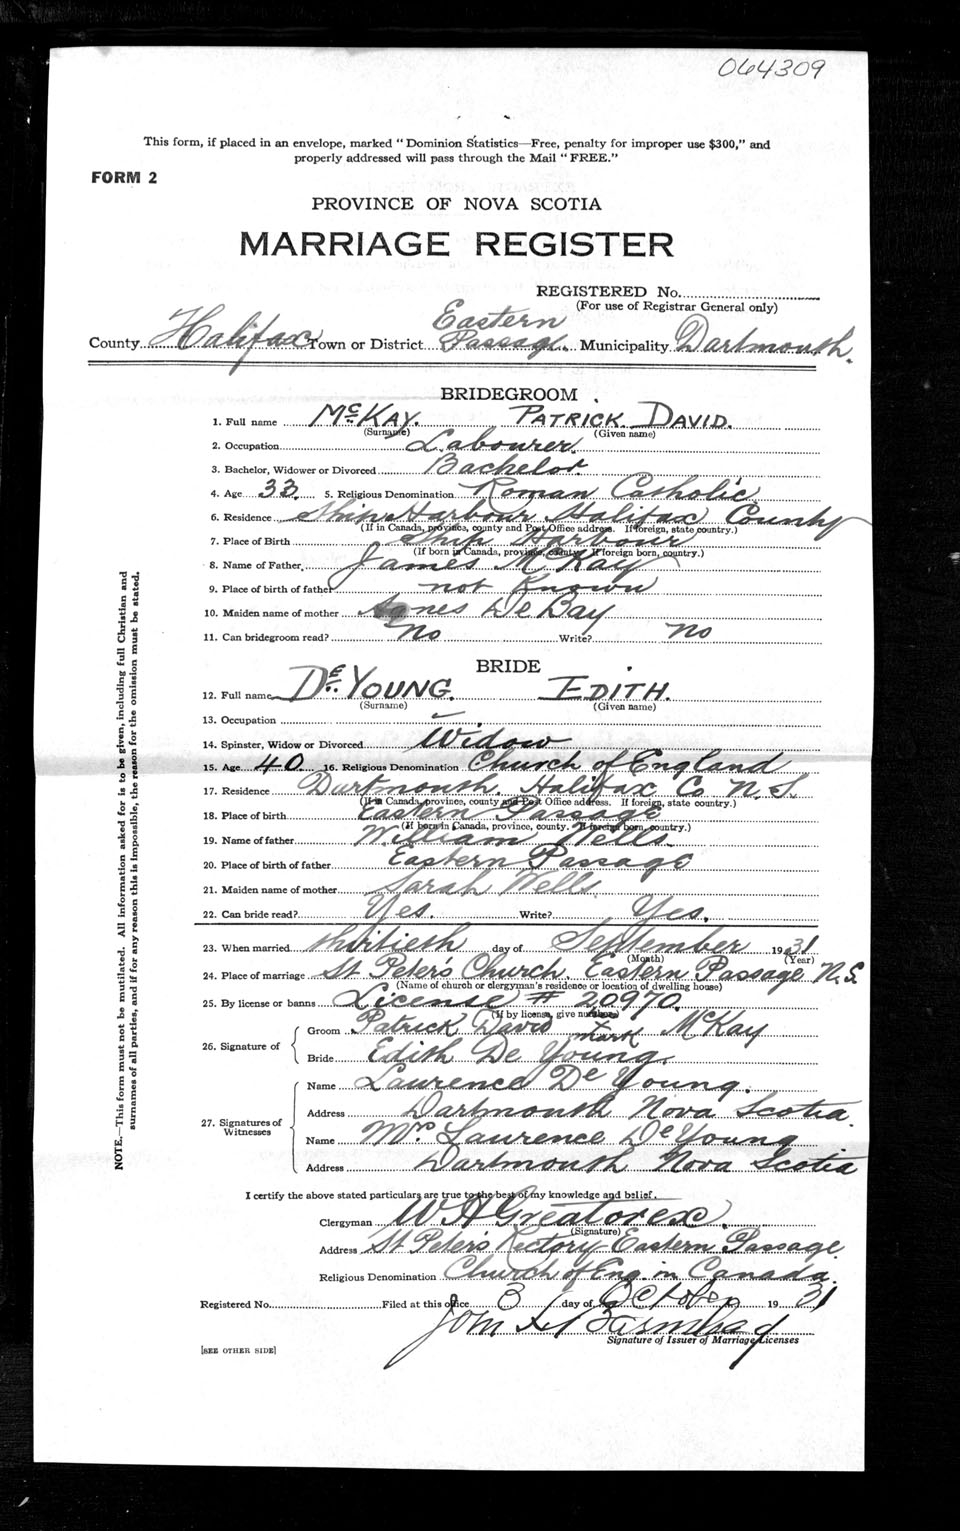 064309
This form, if placed in an envelope, marked "Dominion Statistics—Free, penalty for improper use $300," and
properly addressed will pass through the Mail "FREE."
FORM 2
PROVINCE OF NOVA SCOTIA
MARRIAGE REGISTER
REGISTERED No.
(For use of Registrar General only)
County Halifax Town or District Eastern Passage Municipality Dartmouth.
BRIDEGROOM
1. Full name McKay. Patrick David.
(Surname) (Given name)
2. Occupation Labourer.
3. Bachelor, Widower or Divorced Bachelor
4. Age 33. 5. Religious Denomination Roman Catholic
6. Residence Ship Harbour Halifax County
(If in Canada, province, county and Post Office address. If foreign, state country.)
7. Place of Birth Ship Harbour
(If born in Canada, province, county. If foreign born, country.)
8. Name of Father James McKay
9. Place of birth of father not known
10. Maiden name of mother Agnes De Bay
11. Can bridegroom read? No Write? No
BRIDE
12. Full name De Young. Edith.
(Surname) (Given name)
13. Occupation —
14. Spinster, Widow or Divorced Widow
15. Age 40. 16. Religious Denomination Church of England
17. Residence Dartmouth. Halifax Co N.S.
(If in Canada, province, county and Post Office address. If foreign, state country.)
18. Place of birth Eastern Passage
(If born in Canada, province, county. If foreign born, country.)
19. Name of father William Wells.
20. Place of birth of father Eastern Passage
21. Maiden name of mother Sarah Wells
22. Can bride read? Yes. Write? Yes.
23. When married thirtieth day of September 1931
(Month) (Year)
24. Place of marriage St Peter's Church. Eastern Passage N.S.
(Name of church or clergyman's residence or location of dwelling house)
25. By license or banns License # 20970.
(If by license, give number)
26. Signature of
Groom Patrick David X mark McKay
Bride Edith De Young.
27. Signatures of Witnesses
Name Laurence De Young.
Address Dartmouth Nova Scotia.
Name Mrs Laurence De Young
Address Dartmouth Nova Scotia
I certify the above stated particulars are true to the best of my knowledge and belief.
Clergyman W H Greatorex.
(Signature)
Address St Peter's Rectory Eastern Passage.
Religious Denomination Church of Eng. in Canada.
Registered No. Filed at this office 3 day of October 1931
Signature of Issuer of Marriage Licenses
[SEE OTHER SIDE]
NOTE.—This form must not be mutilated. All information asked for is to be given, including full Christian and
surnames of all parties, and if for any reason this is impossible, the reason for the omission must be stated.